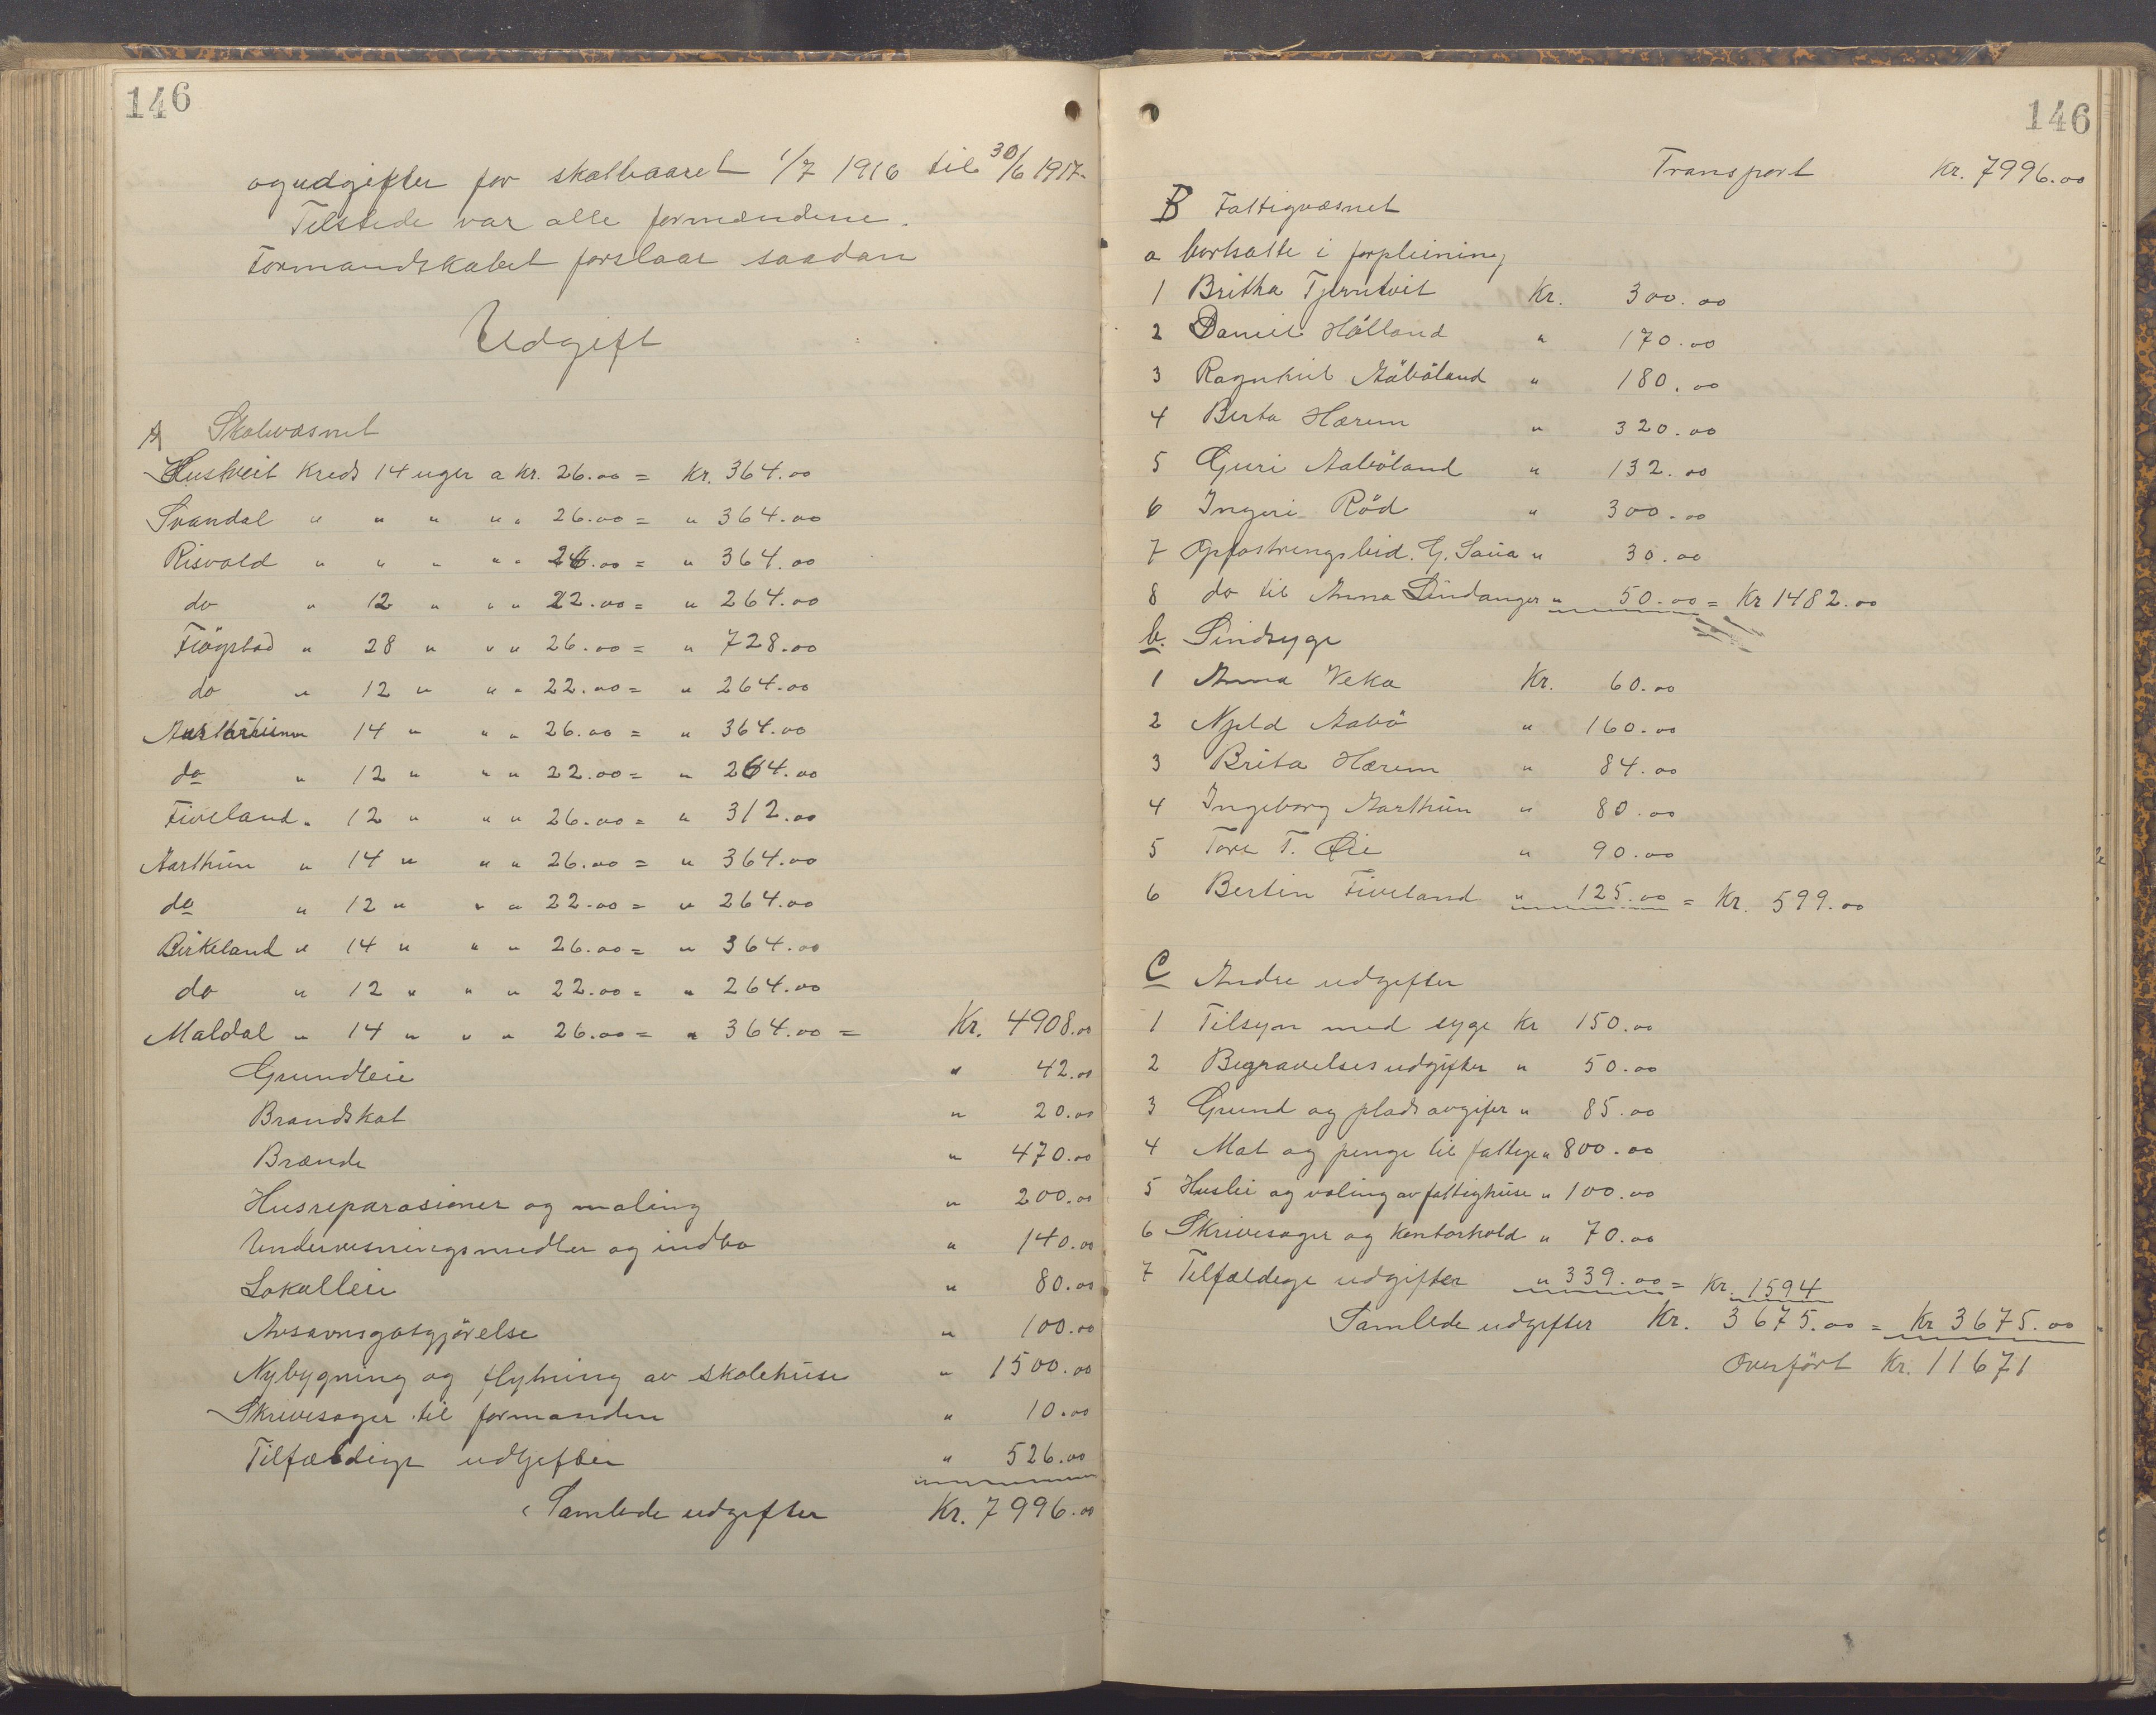 146
ogudgifter for skatteaaret 1/7 1916 til 30/6 1917.
Tilstede var alle formændene.
Formandskabet forslaar saadan
Udgift
A Skolevæsnet
Hustveit Kreds 14 uger a Kr. 26.00 = Kr. 364.00
Svandal " " " " " 26.00 = " 364.00
Risvold " " " " " 26.00 = " 364.00
do " 12 " " " 22.00 = " 264.00
Fiögstad " 28 " " " 26.00 = " 728.00
do " 12 " " " 22.00 = " 264.00
14 " " " 26.00 = " 364.00
do " 12 " " " 22.00 = " 264.00
Fiveland " 12 " " " 26.00 = " 312.00
Aarthun " 14 " " " 26.00 = " 364.00
do " 12 " " " 22.00 = " 264.00
Birkeland " 14 " " " 26.00 = " 364.00
do " 12 " " " 22.00 = " 264.00
Maldal " 14 " " " 26.00 = " 364.00 = Kr. 4908.00
Grundleie " 42.00
Brandskat " 20.00
Brænde " 470.00
Husreparasioner og maling " 200.00
Undervisningsmidler og indbo " 140.00
Lokalleie " 80.00
Avsavnsgotgjörelse " 100.00
Nybygning og flytning av skolehuse " 1500.00
Skrivesager til formanden " 10.00
Tilfældige udgifter " 526.00
Samlede udgifter Kr. 7996.00
146
Transport Kr. 7996.00
B Fattigvæsnet
a bortsatte i forpleining
1 Britha Tjerntveit Kr. 300.00
2 Daniel Hölland " 170.00
3 Ragnhil Aaböland " 180.00
4 Berta Hærem " 320.00
5 Guri Aaböland " 132.00
6 Ingeri Röd " 300.00
7 Opfostringsbid. G. Saua " 30.00
8 do til Anna Lindanger " 50.00 = Kr 1482.00
b. Sindsyge
1 Anna Veka Kr. 60.00
2 Njeld Aabö " 160.00
3 Brita Hærem " 84.00
4 Ingeborg Aarthun " 80.00
5 Tore T. Öie " 90.00
6 Bertin Fiveland " 125.00 = Kr. 599.00
C Andre udgifter
1 Tilsyn med syge Kr 150.00
2 Begravelsesudgifter " 50.00
3 Grund og plads avgifer " 85.00
4 Mat og penge til fattige " 800.00
5 Huslei og voling av fattighuse " 100.00
6 Skrivesager og Kontorhold " 70.00
7 Tilfældige udgifter " 339.00 = Kr. 1594
Samlede udgifter Kr. 3675.00 = Kr 3675.00
Overfört Kr. 11671